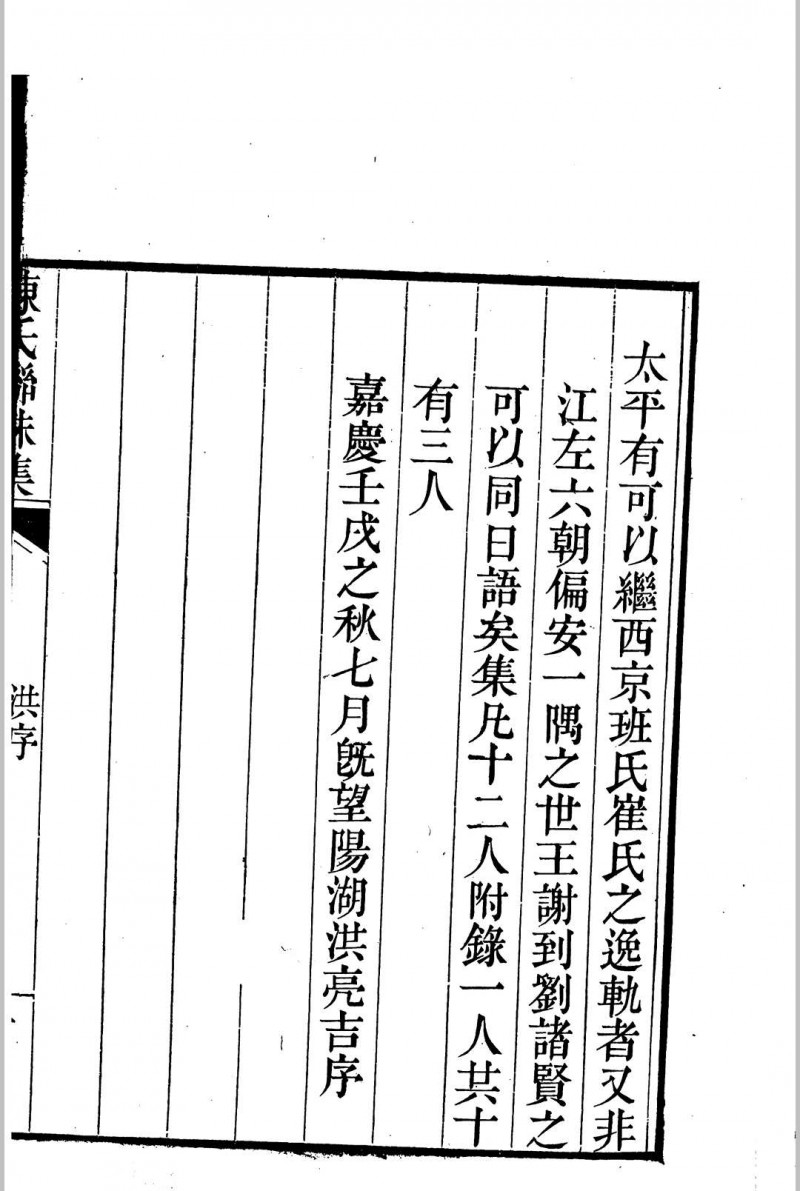 太平有可以繼西京班氏崔氏之逸軌者又非
江左六朝偏安一隅之世王謝到劉諸賢之
可以同日語矣集凡十二人附錄一人共十
有三人
嘉慶壬戌之秋七月旣望陽湖洪亮吉序
陳氏聯珠集
洪序